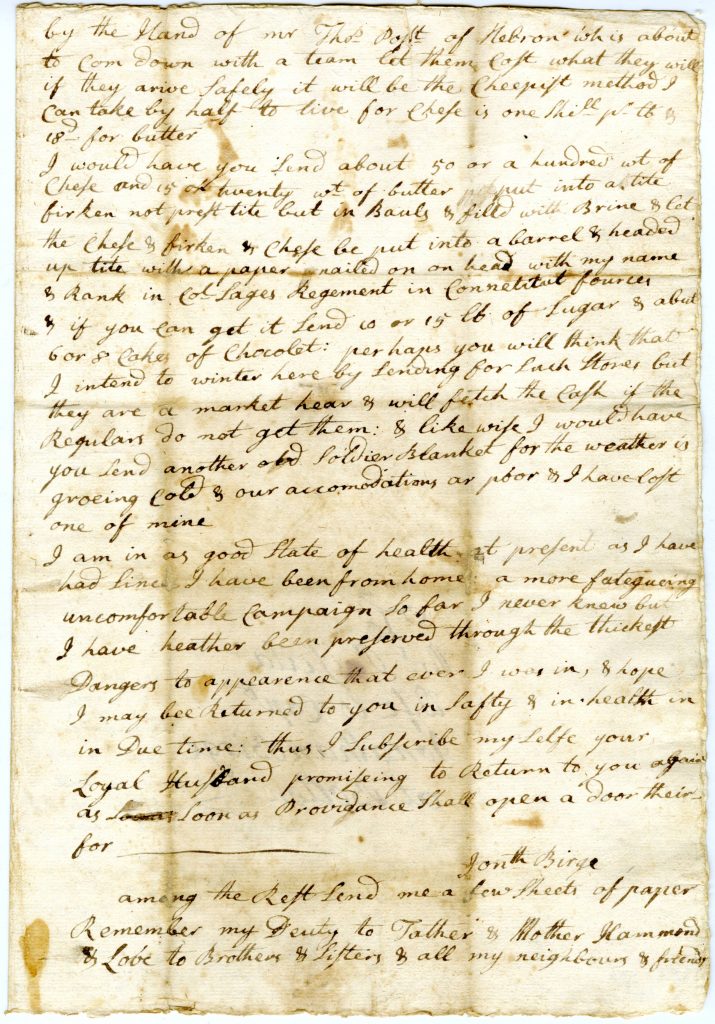 by the Hand of mr Thos Post of Hebron who is about
to Com down with a team let them Cost what they will
if they arive Safely it will be the Cheepist method I
Can take by half to live for Chese is one Shill pr lb &
18d for butter
I would have you Send about 50 or a hundred wt of
Chese and 15 or twenty wt of butter put into a tite
firken not prest tite but in Bauls & filld with Brine & let
the Chese & firken & Chese be put into a barrel & headed
up tite with a paper nailed on on head with my name
& Rank in Col Sages Regement in Connetitut fources
& if you Can get it Send 10 or 15 lb of Sugar & abut
6 or 8 Cakes of Chocolet: perhaps you will think that
I intend to winter here by Sending for Such Stores but
they are a market hear & will fetch the Cash if the
Regulars do not get them: & like wise I would have
you Send another old Soldier Blanket for the weather is
groeing Cold & our accomodations ar poor & I have Lost
one of mine
I am in as good State of health at present as I have
had Since I have been from home: a more fategueing
uncomfortable Campaign So far I never knew but
I have heather been preserved through the thickest
Dangers to appearence that ever I was in, & hope
I may bee Returned to you in Safty & in health in
in Due time: thus I Subscribe my Selfe your
Loyal Husband promiseing to Return to you again
as Soon as Providance Shall open a door their
for
Jonth Birge
among the Rest Send me a few Sheets of paper
Remember my Deuty to Father & Mother Hammond
& Love to Brothers & Sisters & all my neighbours & friends